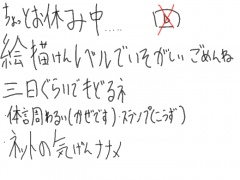 ちょっとお休み中.....
絵描けんレベルでいそがしいごめんね
三日ぐらいでもどるネ
・体調わるい(かぜです)・スランプ(こうず)
・ネットの気げんナナメ